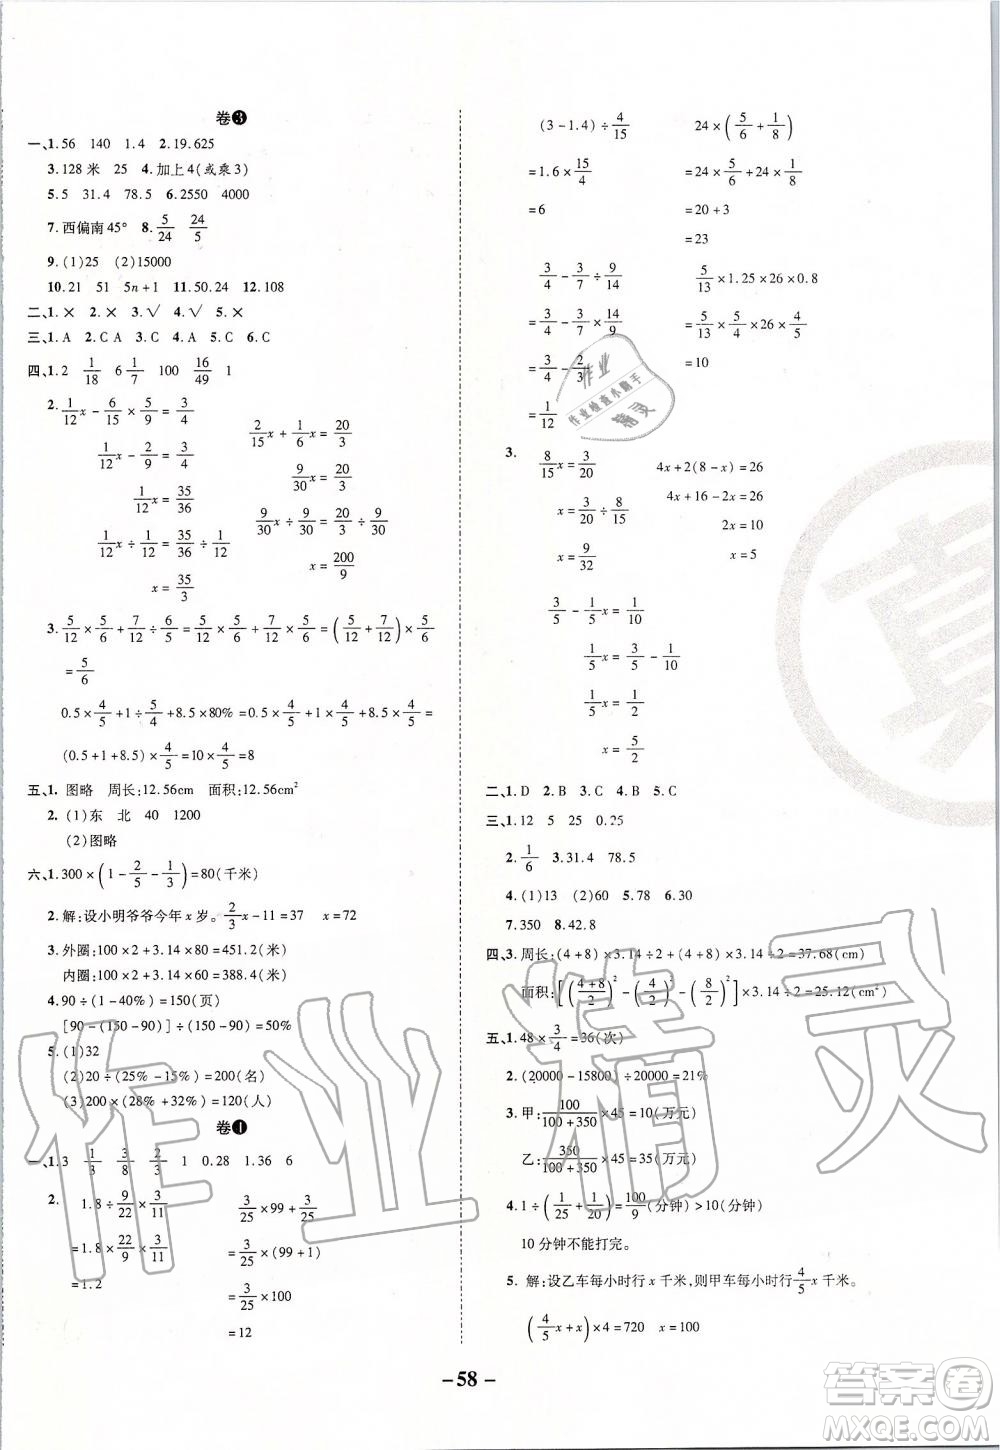 卷❸
一、1.56 140 1.4 2.19.625
3.128米 25 4.加上4(或乘3)
5.5 31.4 78.5 6.2550 4000
7.西偏南45° 8. 5/24 24/5
9.(1)25 (2)15000
10.21 51 5n+1 11.50.24 12.108
二、1.× 2.× 3.√ 4.√ 5.×
三、1.A 2.C A 3.C 4.A 5.A 6.C
四、1.2 1/18 6 1/7 100 16/49 1
2. 1/12 x - 6/15 × 5/9 = 3/4
1/12 x - 2/9 = 3/4
1/12 x = 35/36
1/12 x ÷ 1/12 = 35/36 ÷ 1/12
x = 35/3
2/15 x + 1/6 x = 20/3
9/30 x = 20/3
9/30 x ÷ 9/30 = 20/3 ÷ 9/30
x = 200/9
3. 5/12 × 5/6 + 7/12 ÷ 6/5 = 5/12 × 5/6 + 7/12 × 5/6 = (5/12 + 7/12) × 5/6
= 5/6
0.5 × 4/5 + 1 ÷ 5/4 + 8.5 × 80% = 0.5 × 4/5 + 1 × 4/5 + 8.5 × 4/5 =
(0.5+1+8.5) × 4/5 = 8
五、1. 图略 周长:12.56cm 面积:12.56cm²
2. (1)东 北 40 1200
(2)图略
六、1.300 × (1 - 2/5 - 1/3) = 80(千米)
2. 解:设小明爷爷今年x岁。 2/3 x - 11 = 37 x = 72
3. 外圈:100×2+3.14×80=451.2(米)
内圈:100×2+3.14×60=388.4(米)
4.90÷(1-40%)=150(页)
[90-(150-90)]÷(150-90)=50%
5. (1)32
(2)20÷(25%-15%)=200(名)
(3)200×(28%+32%)=120(人)
卷❶
一、1.3 1/3 3/8 2/3 1 0.28 1.36 6
2. 1.8 ÷ 9/22 × 3/11
= 1.8 × 22/9 × 3/11
= 1.2
3/25 × 99 + 3/25
= 3/25 × (99+1)
= 3/25 × 100
= 12
(3-1.4) ÷ 4/15
= 1.6 × 15/4
= 6
24 × (5/6 + 1/8)
= 24 × 5/6 + 24 × 1/8
= 20+3
= 23
3/4 - 3/7 ÷ 9/14
= 3/4 - 3/7 × 14/9
= 3/4 - 2/3
= 1/12
5/13 × 1.25 × 26 × 0.8
= 5/13 × 5/4 × 26 × 4/5
= 10
3. 8/15 x = 3/20
x = 3/20 ÷ 8/15
x = 9/32
4x+2(8-x)=26
4x+16-2x=26
2x=10
x=5
3/5 - 1/5 x = 1/10
1/5 x = 3/5 - 1/10
1/5 x = 1/2
x = 5/2
二、1. D 2. B 3. C 4. C 5. C
三、1. 12 5 25 0.25
2. 1/6 3.31.4 78.5
4. (1)13 (2)60 5.78 6.30
7.350 8.42.8
四、3. 周长:(4+8)×3.14÷2+(4+8)×3.14÷2=37.68(cm)
面积:[((4+8)/2)² - (4/2)² - (8/2)²]×3.14÷2=25.12(cm²)
五、1.48 × 3/4 = 36(次)
2. (20000-15800)÷20000=21%
3. 甲: 100/(100+350) × 45 = 10(万元)
乙: 350/(100+350) × 45 = 35(万元)
4. 1 ÷ (1/25 + 1/20) = 100/9 (分钟) > 10(分钟)
10分钟不能打完。
5. 解:设乙车每小时行x千米,则甲车每小时行 4/5 x千米。
(4/5 x + x) × 4 = 720 x = 100
- 58 -
作业精灵
作业
作业检查小助手
精灵
真
答案圈
MXQE.COM